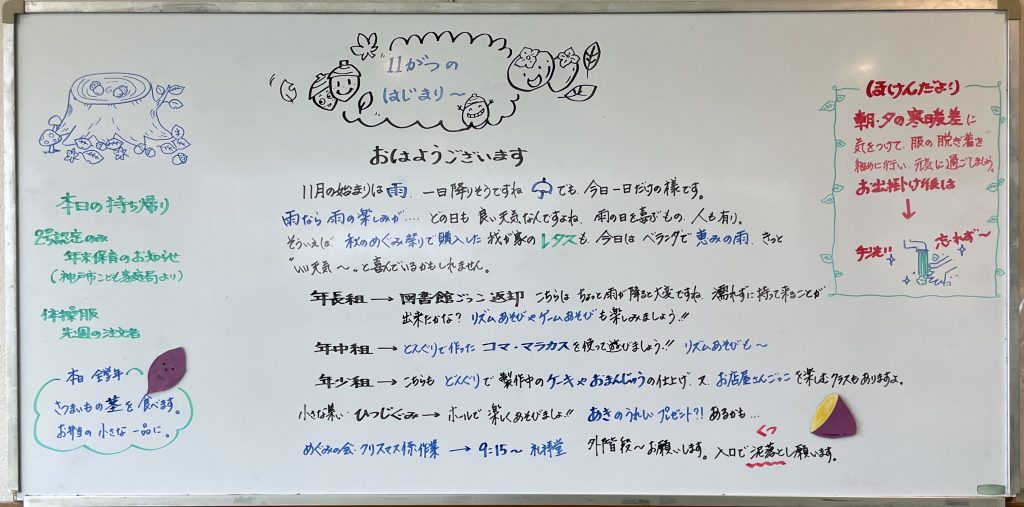 11がつの
はじまり～
おはようございます
11月の始まりは雨、一日降りそうですね でも、今日一日だけの様です。
雨なら雨の楽しみが…… どの日も良い天気なんですよね、雨の日を喜ぶもの、人も有り。
そういえば 秋のめぐみ祭りで購入した我が家のレタスも、今日はベランダで恵みの雨、きっと
"いい天気～"と喜んでいるかもしれません。
年長組→図書館ごっこ返却 こちらは ちょっと雨が降ると大変ですね、濡れずに持って来ることが
出来たかな? リズムあそびやゲームあそびも楽しみましょう!!
年中組→どんぐりで作ったコマ・マラカスを使って遊びましょう!! リズムあそびも～
年少組→こちらも どんぐりで 製作中のケーキやおまんじゅうの仕上げ、又、お店屋さんごっこを楽しむクラスもありますよ。
小さな募い ひつじぐみ→ホールで楽しくあそびましょ!! あきのうれしいプレゼント?! あるかも…
めぐみの会・クリスマス係作業 → 9:15～ 礼拝堂 外階段～お願いします。入口でくつ泥落とし願います。
本日の持ち帰り
2号認定のみ
年末保育のお知らせ
(神戸市こども家庭局より)
体操服
先週の注文者
本日 全学年へ
さつまいもの茎を食べます。
お弁当の小さな一品に。
ほけんだより
朝・夕の寒暖差に
気をつけて、服の脱ぎ着き
細めに行い、元気に過ごしましょう
お出掛け後は
↓
手洗い 忘れず～